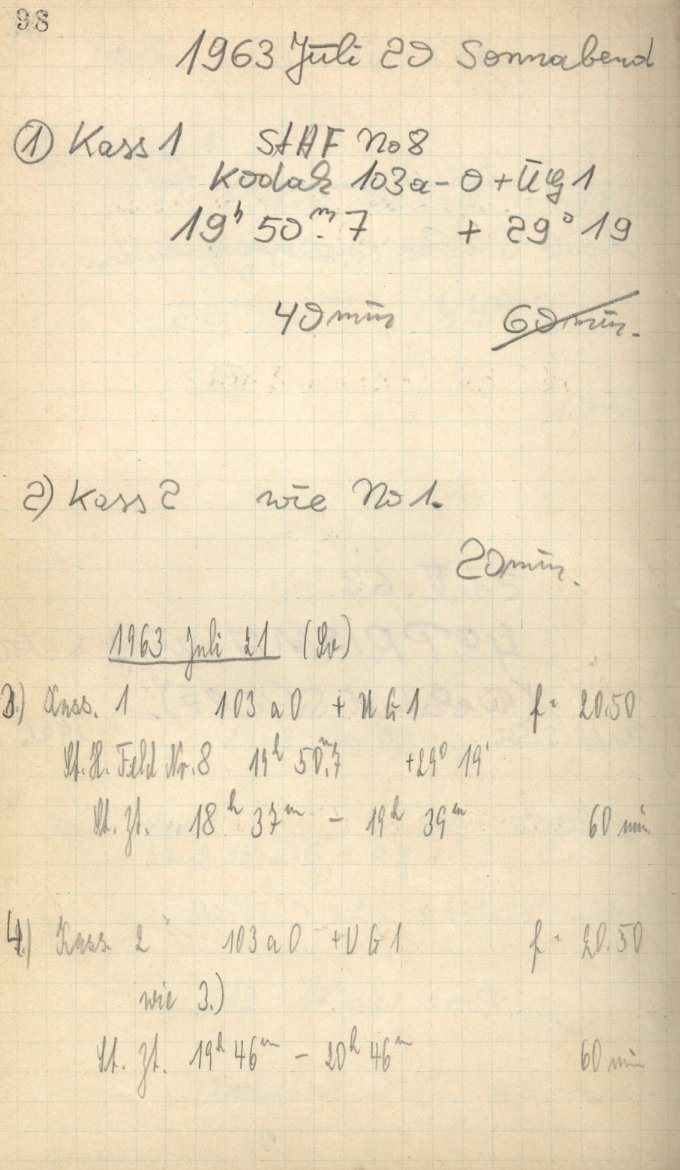 98
1963 Juli 20 Sonnabend
① Kass 1 StHF No 8
Kodak 103a-O + UG 1
19ʰ 50ᵐ.7 + 29° 19
40 min 60 min.
2) Kass 2 wie No 1.
20 min.
1963 Juli 21 (So)
3.) Kass. 1 103 a O + UG 1 f = 20.50
St. H. Feld Nr. 8 19ʰ 50ᵐ.7 +29° 19'
St. Zt. 18ʰ 37ᵐ – 19ʰ 39ᵐ 60 min
4.) Kass. 2 103 a O + UG 1 f = 20.50
wie 3.)
St. Zt. 19ʰ 46ᵐ – 20ʰ 46ᵐ 60 min